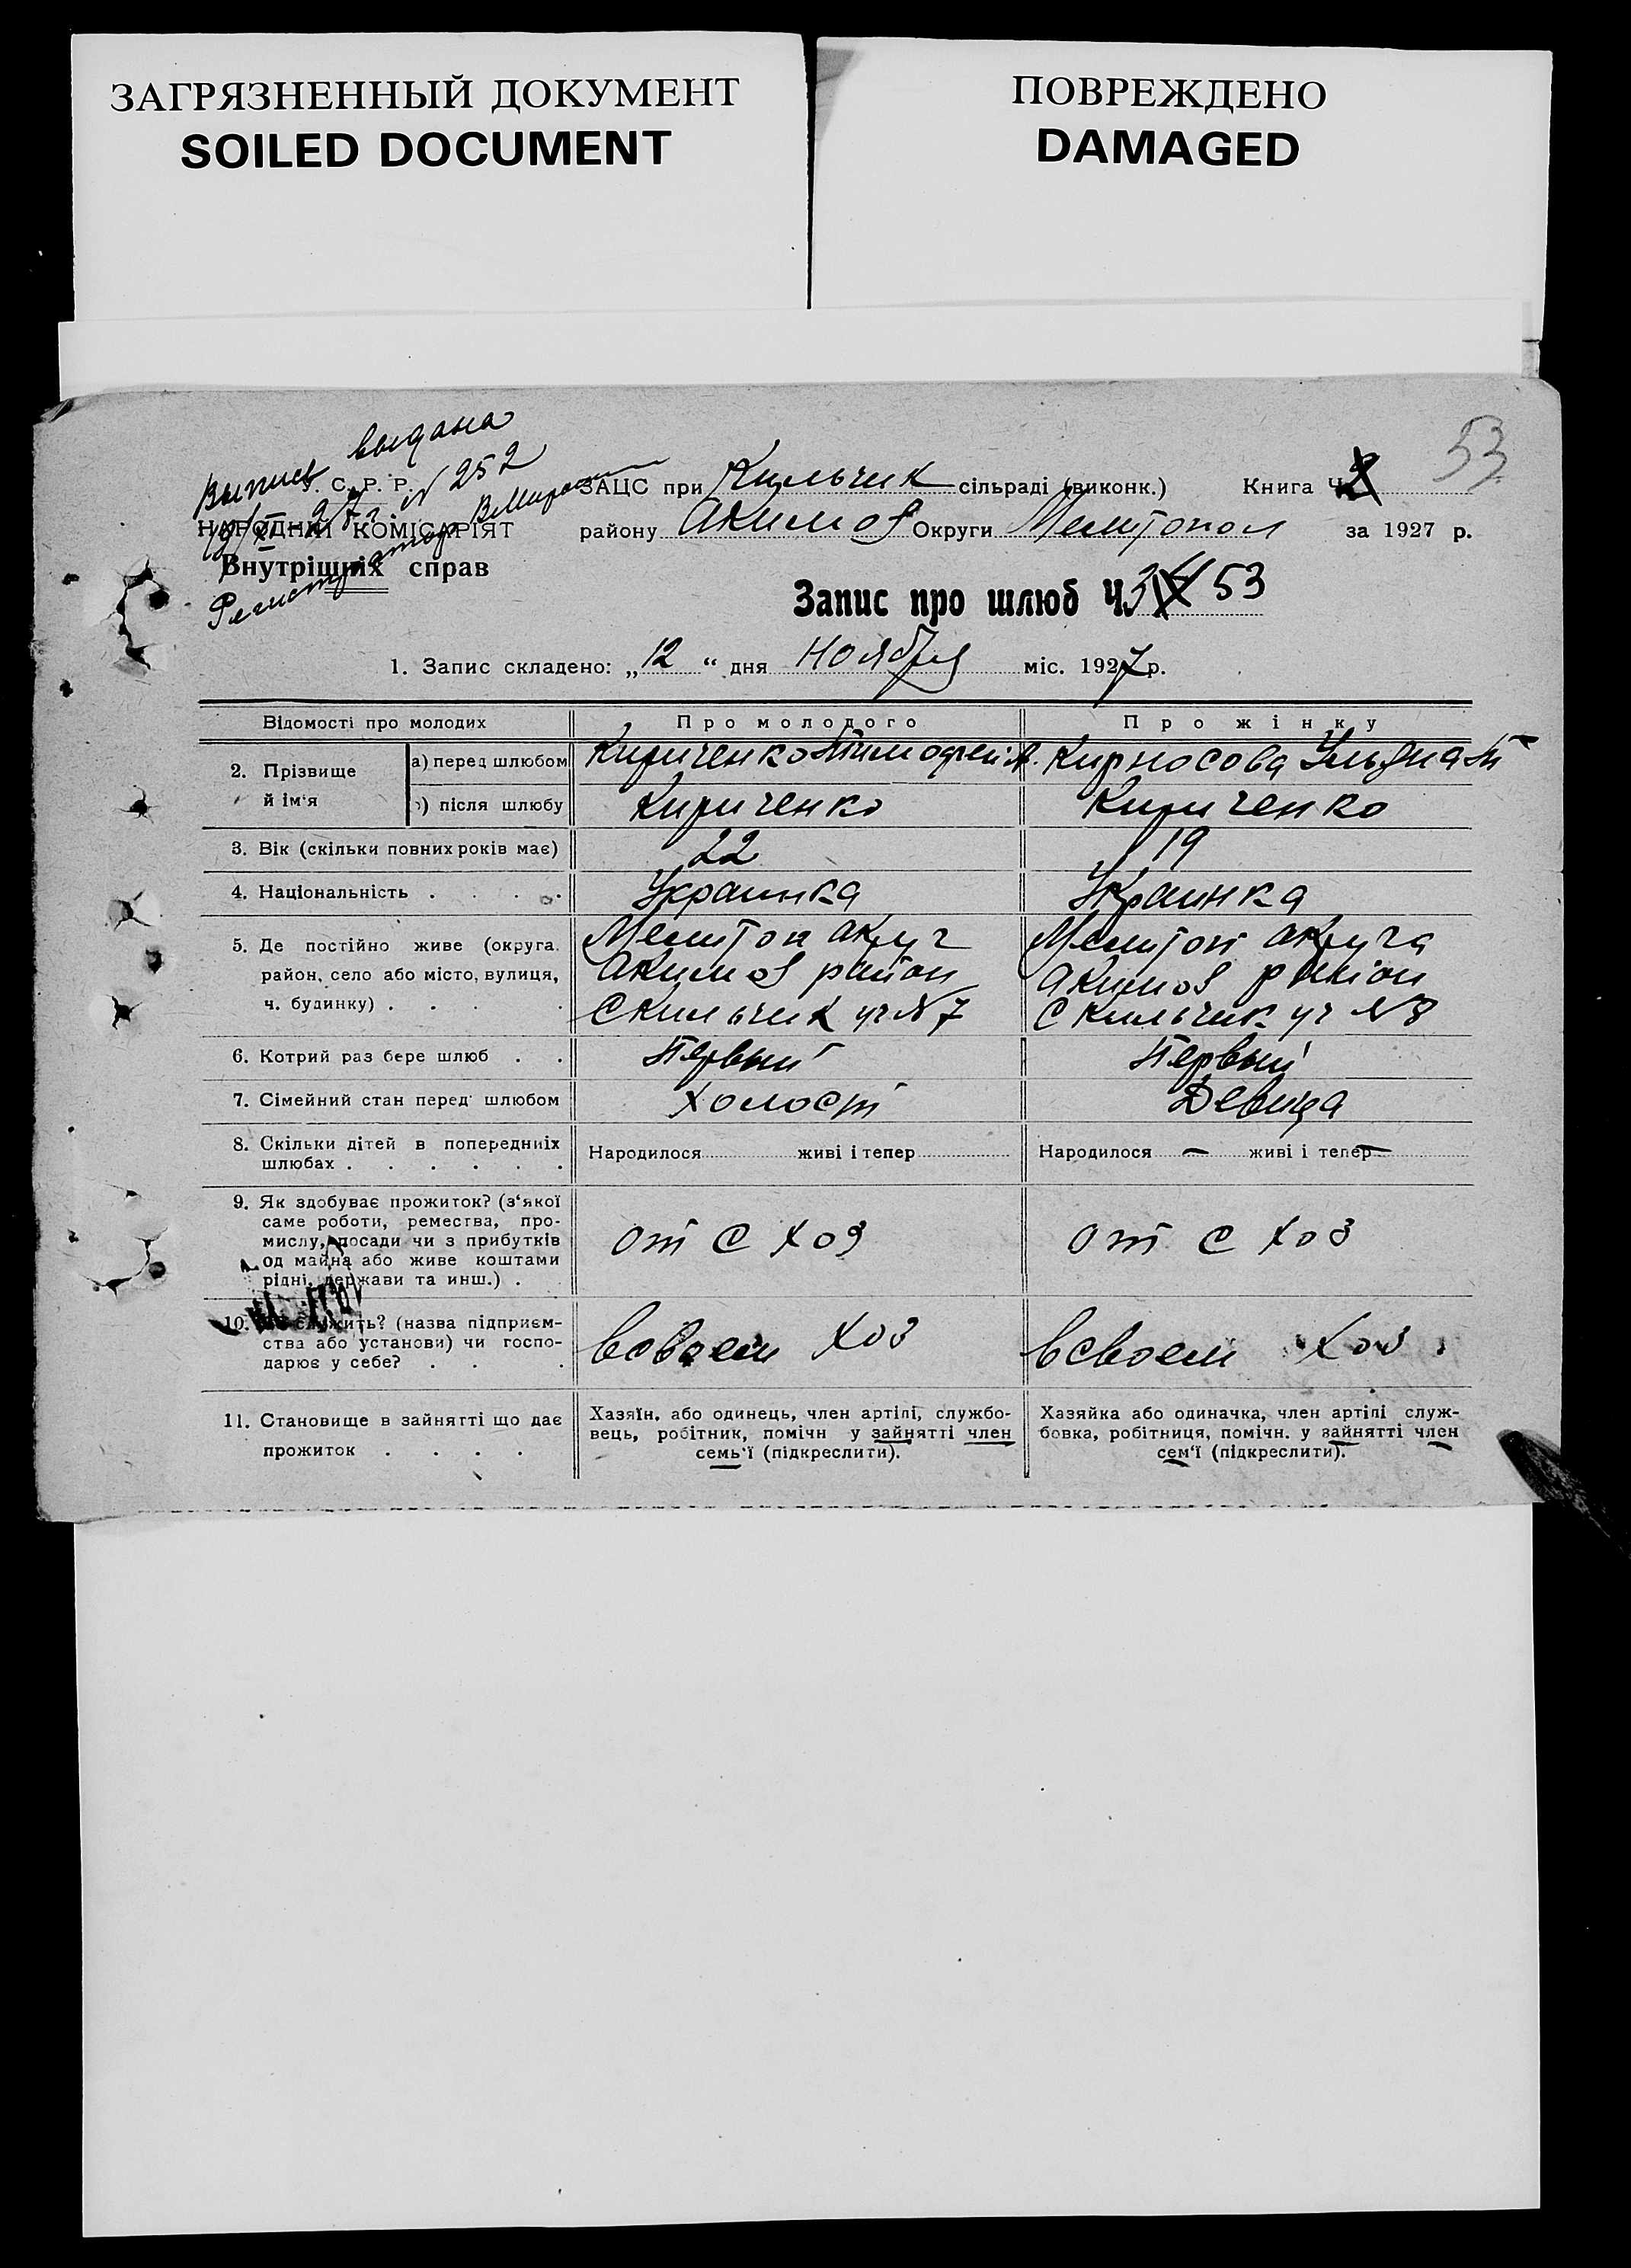 ЗАГРЯЗНЕННЫЙ ДОКУМЕНТ
SOILED DOCUMENT
ПОВРЕЖДЕНО
DAMAGED
53
Выпись выдана
19/XI-27г. N 252
Регистратор
С. Р. Р.
НАРОДНИЙ КОМІСАРІЯТ
Внутрішніх справ
ЗАЦС при Кильчик сільраді (виконк.) Книга Ч.
району Акимов Округи Мелитопол за 1927 р.
Запис про шлюб Ч. 53
1. Запис складено: „12“ дня Ноября міс. 1927 р.
Відомості про молодих Про молодого Про жінку
2. Прізвище й ім'я
а) перед шлюбом Кириченко Тимофей А. Кирносова Ульяна М
б) після шлюбу Кириченко Кириченко
3. Вік (скільки повних років має) 22 19
4. Національність . . . . . Украинка Украинка
5. Де постійно живе (округа. Мелитоп округ Мелитоп округа
район, село або місто, вулиця, Акимов район Акимов район
ч. будинку) . . . . С Кильчик уч №7 С Кильчик уч №8
6. Котрий раз бере шлюб . . Первый Первый
7. Сімейний стан перед шлюбом Холост Девица
8. Скільки дітей в попередніх Народилося живі і тепер Народилося — живі і тепер —
шлюбах . . . . . .
9. Як здобуває прожиток? (з'якої
саме роботи, ремества, про-
мислу, посади чи з прибутків от с хоз от с хоз
од майна або живе коштами
рідні, держави та инш.) .
10. служить? (назва підприєм-
ства або установи) чи госпо- всвоем хоз всвоем хоз
дарює у себе? . . .
11. Становище в зайнятті що дає
прожиток . . . .
Хазяїн, або одинець, член артілі, службо-
вець, робітник, помічн у зайнятті член
семь'ї (підкреслити).
Хазяйка або одиначка, член артілі служ-
бовка, робітниця, помічн. у зайнятті член
сем'ї (підкреслити).